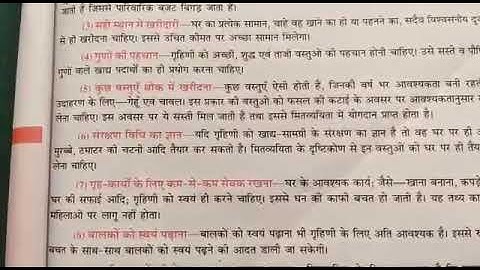 जाती है जिससे पारिवारिक बजट बिगड़ जाता है।
(3) सही स्थान में खरीदारी—घर का प्रत्येक सामान, चाहे वह खाने का हो या पहनने का, सदैव विश्वसनीय दु
से ही खरीदना चाहिए। इससे उचित कीमत पर अच्छा सामान मिलेगा।
(4) गुणों की पहचान—गृहिणी को अच्छी, शुद्ध एवं ताजी वस्तुओं की पहचान होनी चाहिए। उसे सस्ते व पौ
गुणों वाले खाद्य पदार्थों का ही प्रयोग करना चाहिए।
(5) कुछ वस्तुएँ थोक में खरीदना—कुछ वस्तुएँ ऐसी होती हैं, जिनकी वर्ष भर आवश्यकता बनी रहती
उदाहरण के लिए—गेहूँ एवं चावल। इस प्रकार की वस्तुओं को फसल की कटाई के अवसर पर आवश्यकतानुसार
लेना चाहिए। इस अवसर पर ये सस्ती मिल जाती हैं तथा इससे मितव्ययिता में योगदान प्राप्त होता है।
(6) संरक्षण विधि का ज्ञान—यदि गृहिणी को खाद्य-सामग्री के संरक्षण का ज्ञान है तो वह घर पर ही अ
मुरब्बे, टमाटर की चटनी आदि तैयार कर सकती है। मितव्ययिता के दृष्टिकोण से इन वस्तुओं को घर पर ही तैय
लेना चाहिए।
(7) गृह-कार्यों के लिए कम-से-कम सेवक रखना—घर के आवश्यक कार्य; जैसे—खाना बनाना, कपड़े
घर की सफाई आदि; गृहिणी को स्वयं ही करने चाहिए। इससे धन की काफी बचत हो जाती है। यह तथ्य का
महिलाओं पर लागू नहीं होता।
(8) बालकों को स्वयं पढ़ाना—बालकों को स्वयं पढ़ाना भी गृहिणी के लिए अति आवश्यक है। इससे रु
बचत के साथ-साथ बालकों को स्वयं पढ़ने की आदत डाली जा सकेगी।